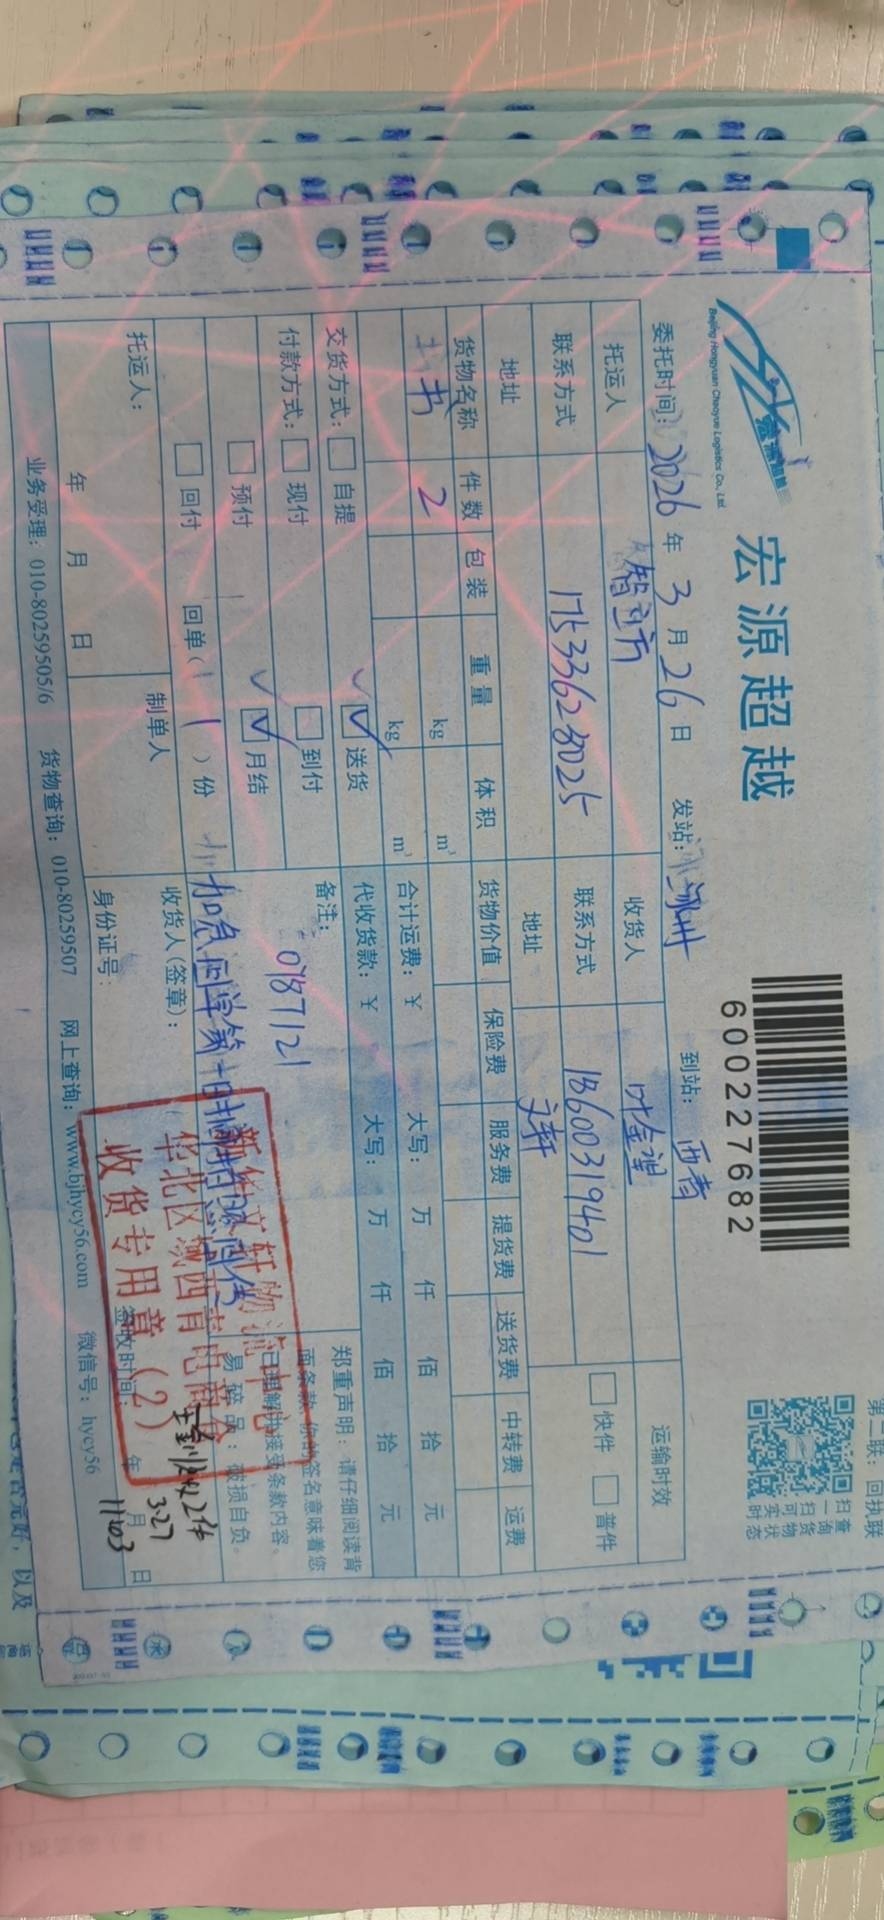 宏源超越
Beijing Hongyuan Chaoyue Logistics Co., Ltd.
600227682
第二联：回执联
扫一扫可实时
查询货物状态
委托时间：2026年3月26日 发站： 到站：西青
托运人 智立方 收货人 叶金望 运输时效
联系方式 17533628025 联系方式 18600319401 快件 普件
地址 地址 文轩
货物名称 件数 包装 重量 体积 货物价值 保险费 服务费 提货费 送货费 中转费 运费
书 2 kg m³
kg m³ 合计运费：¥ 大写： 万 仟 佰 拾 元
代收货款：¥ 大写： 万 仟 佰 拾 元
交货方式： 自提 送货
付款方式： 现付 到付
预付 月结
回付 回单（1）份
备注： 0187121
加急
郑重声明：请仔细阅读背
面条款，你的签名意味着您
已理解并接受条款内容。
易碎品：破损自负。
托运人： 制单人 收货人（签章）：
年 月 日 身份证号： 签收时间： 年 月 日
新华文轩物流
华北区域西青电商仓
收货专用章（2）
实收2件
3.27
11:03
业务受理：010-80259505/6 货物查询：010-80259507 网上查询：www.bjhycy56.com 微信号：hycy56